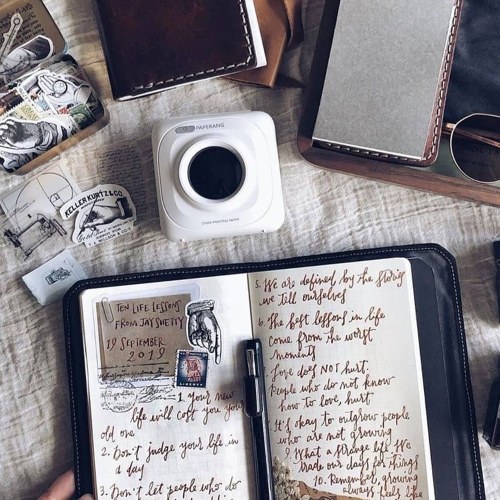 PAPERANG
KELLER KURTZ & CO.
TEN LIFE LESSONS
FROM JAY SHETTY
19 SEPTEMBER
2019
LIBERTY
1. Your new
life will cost you your
old one
2. Don't judge your life in
a day
3. Don't let people who do
5. We are defined by the stories
we tell ourselves
6. The best lessons in life
come from the worst
moments
Love does NOT hurt.
People who do not know
how to love hurt
It's okay to outgrow people
who are not growing
9. What a strange life. We
trade our days for things
10. Remember, growing
always feels like